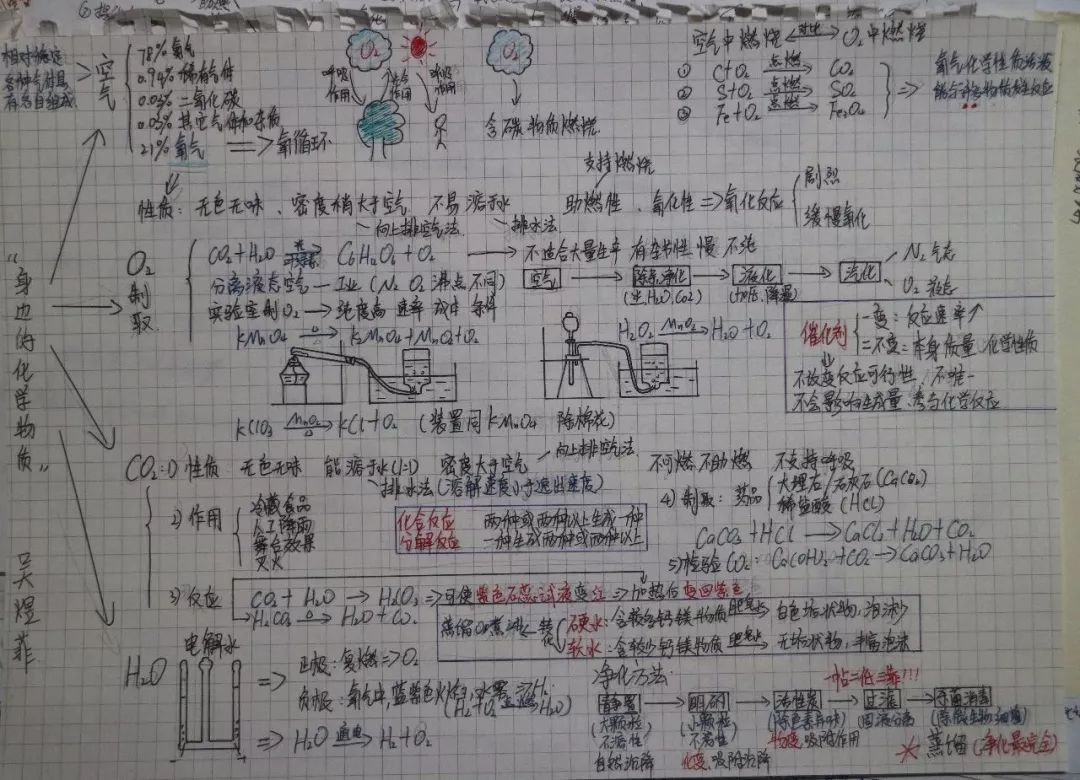 相对稳定
各种气体具
有各自组成
空气
78% 氮气
0.94% 稀有气体
0.03% 二氧化碳
0.03% 其它气体和杂质
21% 氧气 => 氧循环
O₂
呼吸作用
光合作用
呼吸作用
O₂
含碳物质燃烧
空气中燃烧 对比 O₂中燃烧
① C+O₂ 点燃 CO₂
② S+O₂ 点燃 SO₂
③ Fe+O₂ 点燃 Fe₃O₄
氧气化学性质活泼
能与许多物质发生反应
性质: 无色无味、密度稍大于空气 不易溶于水
向上排空气法
排水法
支持燃烧
助燃性、氧化性 => 氧化反应
剧烈
缓慢氧化
"身边的化学物质"
吴煜菲
O₂制取
CO₂+H₂O → C₆H₁₂O₆+O₂ → 不适合大量生产 慢 不纯
分离液态空气 — 工业 (N₂ O₂ 沸点不同)
空气 → 除杂净化 → 液化 → 汽化
(尘、H₂O、CO₂)
(加压、降温)
N₂ 气态
O₂ 液态
实验室制O₂ → 纯度高 速率 成本 条件
KMnO₄ △ K₂MnO₄+MnO₂+O₂
H₂O₂ MnO₂ H₂O+O₂
催化剂
一变: 反应速率↑
二不变: 本身质量、化学性质
不改变反应可行性、不唯一
不会影响生成量、参与化学反应
KClO₃ MnO₂ △ KCl+O₂ (装置同KMnO₄ 除棉花)
CO₂: 1) 性质 无色无味 能溶于水(1:1) 密度大于空气 不可燃、不助燃 不支持呼吸
向上排空气法
排水法(溶解速度小于逸出速度)
2) 作用
冷藏食品
人工降雨
舞台效果
灭火
化合反应 两种或两种以上生成一种
分解反应 一种生成两种或两种以上
4) 制取: 药品
大理石/石灰石(CaCO₃)
稀盐酸(HCl)
CaCO₃+HCl → CaCl₂+H₂O+CO₂
5) 检验CO₂: Ca(OH)₂+CO₂ → CaCO₃+H₂O
3) 反应 CO₂+H₂O → H₂CO₃ => 可使紫色石蕊试液变红 => 加热后变回紫色
H₂CO₃ △ H₂O+CO₂
转化
硬水: 含较多钙镁物质 肥皂水 白色垢状物,泡沫少
软水: 含较少钙镁物质 肥皂水 无垢状物,丰富泡沫
H₂O
电解水
正极: 复燃 => O₂
负极: 氧气中,蓝色火焰,水雾 => H₂
(H₂+O₂ H₂O)
=> H₂O 通电 H₂+O₂
净化方法:
一帖二低三靠!!!
静置 → 明矾 → 活性炭 → 过滤 → 杀菌消毒
(大颗粒 不溶性)
自然沉降
(小颗粒 不溶性)
化变、吸附沉降
(除色素异味)
物变、吸附作用
(固液分离)
* 蒸馏(净化最完全)